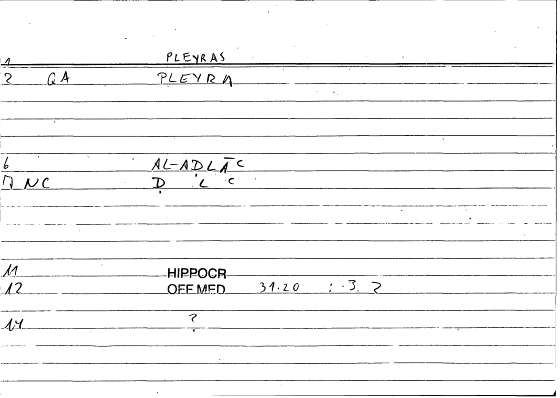 1 PLEYRAS
2 GA PLEYRA
6 AL-ADLĀC
7 NC Ḍ L C
11 HIPPOCR
12 OFF MED 31.20 : 3. 2
14 ?